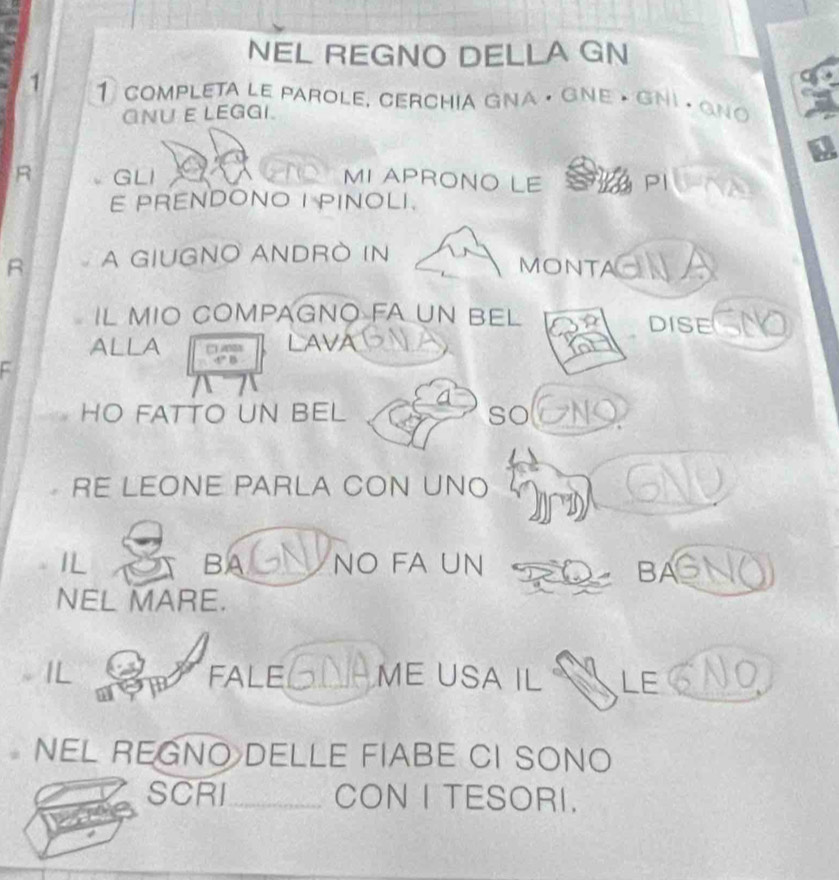 NEL REGNO DELLA GN
1 1 COMPLETA LE PAROLE, CERCHIA GNA • GNE • GNI • GNO
GNU E LEGGI.
R GLI GNO MI APRONO LE PI GNA
E PRENDONO I PINOLI.
R A GIUGNO ANDRÒ IN MONTAGNA
IL MIO COMPAGNO FA UN BEL DISEGNO
ALLA LAVAGNA
F
HO FATTO UN BEL SOGNO.
RE LEONE PARLA CON UNO GNU
IL BAGNINO FA UN BAGNO
NEL MARE.
IL FALEGNAME USA IL LEGNO
NEL REGNO DELLE FIABE CI SONO
SCRI______ CON I TESORI.